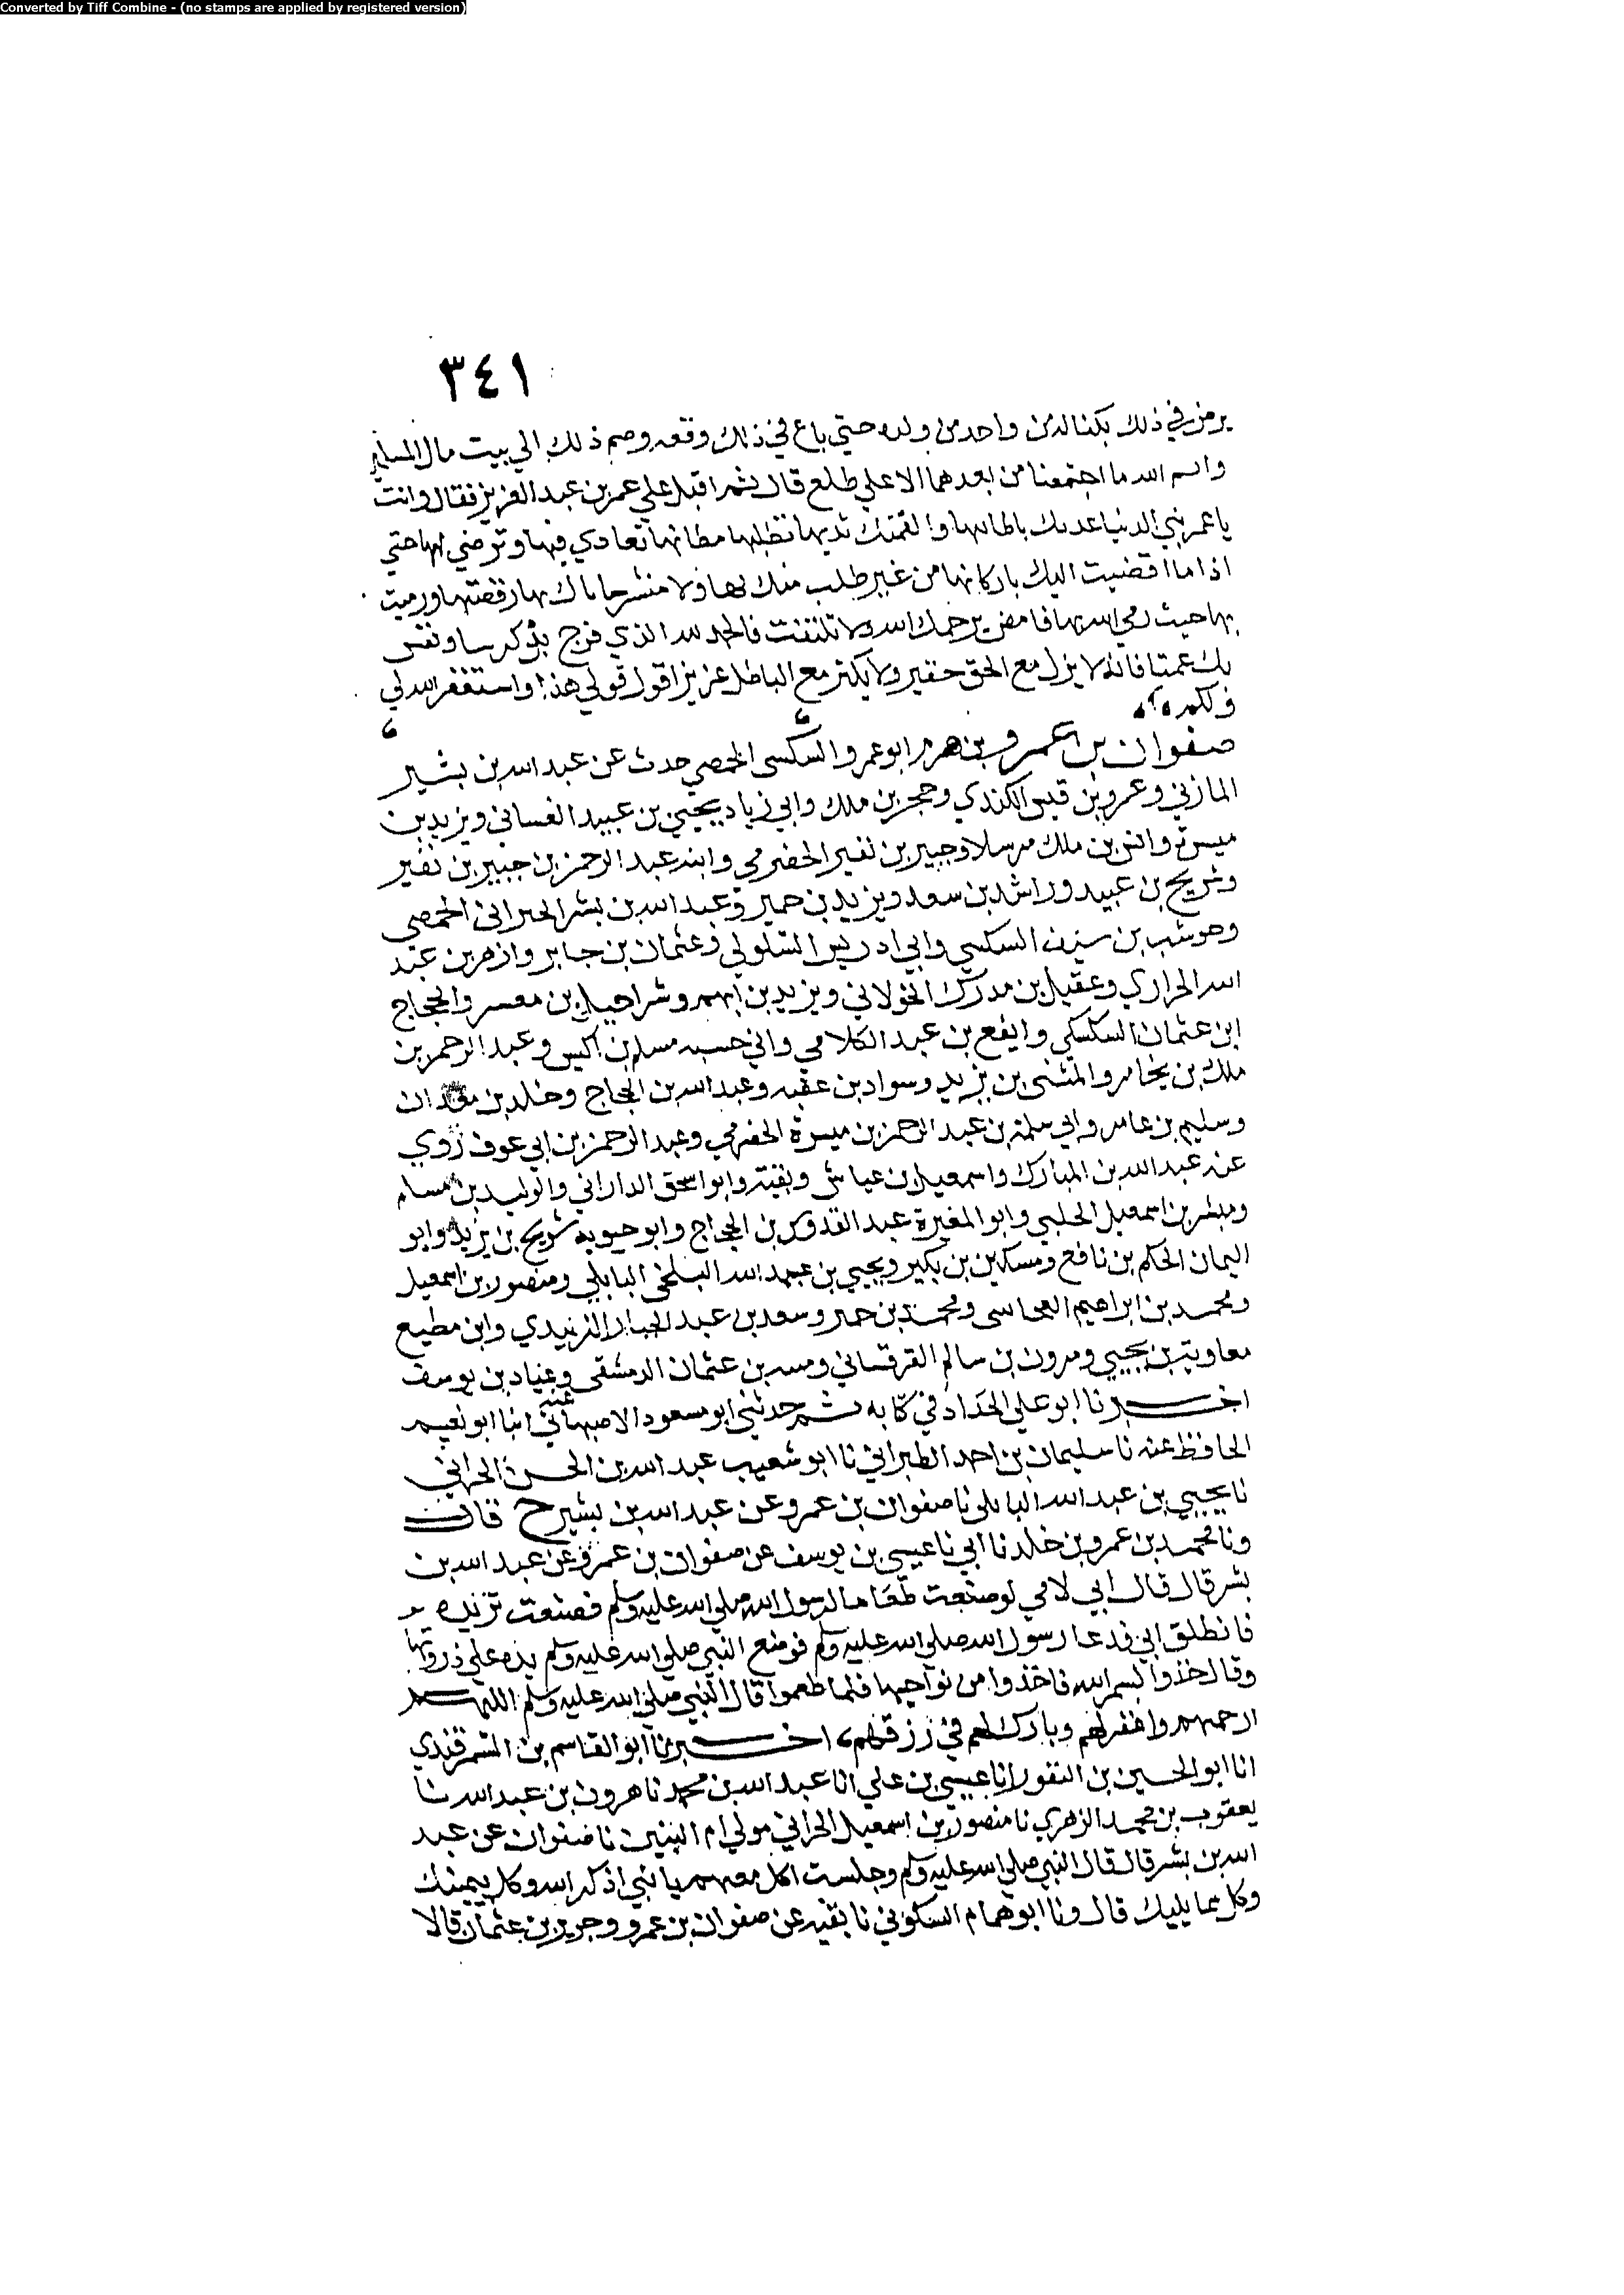 Converted by Tiff Combine - (no stamps are applied by registered version)
٣٤١
يرمز في ذلك بكفالة من واحد من ولده حتي باع في ذلك وقعه وصم ذلك الي بيت مال المسلمين
وايم الله ما اجتمعنا من بعدهما الا علي طلع قال ثم اقبل علي عمر بن عبد العزيز فقال وانت
يا عمر بني الدنيا غدتك باطايبها والقمتك ثديها تطلبها مظانها تعادي فيها وترضي لها حتي
اذا ما افضيت اليك باركانها من غير طلب منك لها ولا رفضتها ورميت
بها حيث رمي الله بها فامض يرحمك الله ولا تلتفت فالحمد لله الذي فرج بك كربنا ونفس
بك غمتنا فانه لا يزل مع الحق حقير ولا يكثر مع الباطل عزيز اقول قولي هذا واستغفر الله لي
ولكم
صفوان بن عمرو بن هرم ابو عمرو السكسكي الحمصي حدث عن عبد الله بن بشير
المازني وعمرو بن قيس الكندي وحجر بن ملك وابي زياد يحيي بن عبيد الغساني ويزيد بن
ميسرة وانس بن ملك مرسلا وجبير بن نفير الحضرمي وابنه عبد الرحمن بن جبير بن نفير
وشريح بن عبيد وراشد بن سعد ويزيد بن حمير وعبد الله بن بشر الحبراني الحمصي
وحوشب بن سيف السكسكي وابي ادريس السلولي وعثمان بن جابر وازهر بن عبد
الله الحرازي وعقيل بن مدرك الخولاني ويزيد بن ايهم وشراحيل بن معسر والحجاج
ابن عثمان السكسكي وايفع بن عبد الكلامي وابي حسبه مسلم بن اكيس وعبد الرحمن بن
ملك بن يخامر والمثني بن يزيد وسواد بن عقبه وعبد الله بن الحجاج وخلد بن معدان
وسليم بن عامر وابي سلمة بن عبد الرحمن بن ميسرة الحضرمي وعبد الرحمن بن ابي عوف روي
عنه عبد الله بن المبارك واسمعيل بن عياش وبقية وابو اسحق الداراني والوليد بن مسلم
ومبشر بن اسمعيل الحلبي وابو المغيرة عبد القدوس بن الحجاج وابو حيوية شريح بن يزيد وابو
اليمان الحكم بن نافع ومسكين بن بكير ويحيي بن عبد الله البلخي البابلي ومنصور بن اسمعيل
ومحمد بن ابراهيم ومحمد بن حمير وسعد بن عبد الجبار الزبيدي وابن مطيع
معاوية بن يحيي ومرون بن سالم القرقساني ومسه بن عثمان الدمشقي وعباد بن يوسف
اخبرنا ابو علي الحداد في كتابه ثم حدثني ابو مسعود الاصبهاني عنه انبا ابو نعيم
الحافظ عنه نا سليمان بن احمد الطبراني نا ابو شعيب عبد الله بن الحسن الحراني
نا يحيي بن عبد الله البابلي نا صفوان بن عمرو عن عبد الله بن بشير ح قال
ونا محمد بن عمرو بن خلد نا ابي نا عيسي بن يوسف عن صفوان بن عمرو عن عبد الله بن
بشر قال قال ابي لامي لو صنعت طعاما لرسول الله صلي الله عليه وسلم فصنعت ثريده
فانطلق ابي فدعا رسول الله صلي الله عليه وسلم فوضع النبي صلي الله عليه وسلم يده علي ذروتها
وقال خذوا بسم الله فاخذوا من نواحيها فلما طعموا قال النبي صلي الله عليه وسلم اللهم
ارحمهم واغفر لهم وبارك لهم في رزقهم اخبرنا ابو القاسم بن السمرقندي
انا ابو الحسين بن النقور انا عيسي بن علي انا عبد الله بن محمد نا هرون بن عبد الله نا
يعقوب بن محمد الزهري نا منصور بن اسمعيل الحراني مولي ام البنين نا صفوان عن عبد
الله بن بشر قال قال النبي صلي الله عليه وسلم وجلست اكل معهم يا بني اذكر الله وكل بيمينك
وكل مما يليك قال ونا ابو همام السكوني نا بقيه عن صفوان بن عمرو وحريز بن عثمان قالا